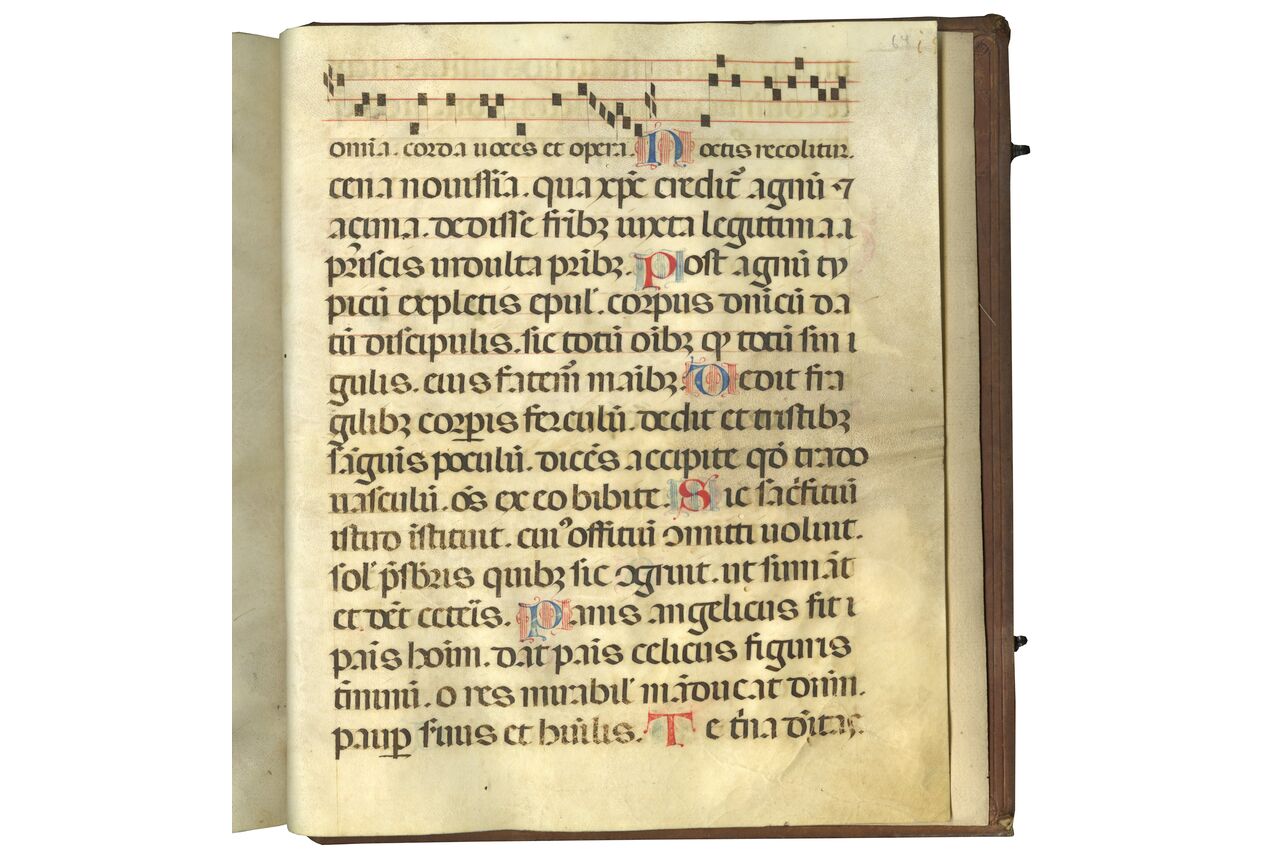 64
omīa. corda uoces et opera. Noctis recolitur.
cena nouissīa. qua xp̄c credit̄ agnū ⁊
açima. dedisse fr̄ibꝫ iuxta legittima i
pr̄iscis indulta pr̄ibꝫ. Post agnū ty
picū expletis epul̕. corpus dn̄icū da
tū discipulis. sic totū oībꝫ qꝫ totū sin
gulis. eius fatem̄ manībꝫ. Dedit fra
gilibꝫ corꝑis ferculū. dedit et tristibꝫ
sāguīs poculū. dicēs accipite qd̄ trado
uasculū. oēs ex eo bibite. Sic sac̄fitiū
istud īstituit. cui᷒ offitiū ꝯmitti uoluit.
sol̕ p̄sb̄ris quibꝫ sic ꝯgruit. ut sumāt
et dēt cet̄eis. Panis angelicus fit
pāis hoīm. dat pāis celicus figuris
t̄minū. o res mirabil̕ māducat dn̄m.
pauꝑ seruus et humilis. Te t̄na dēitas